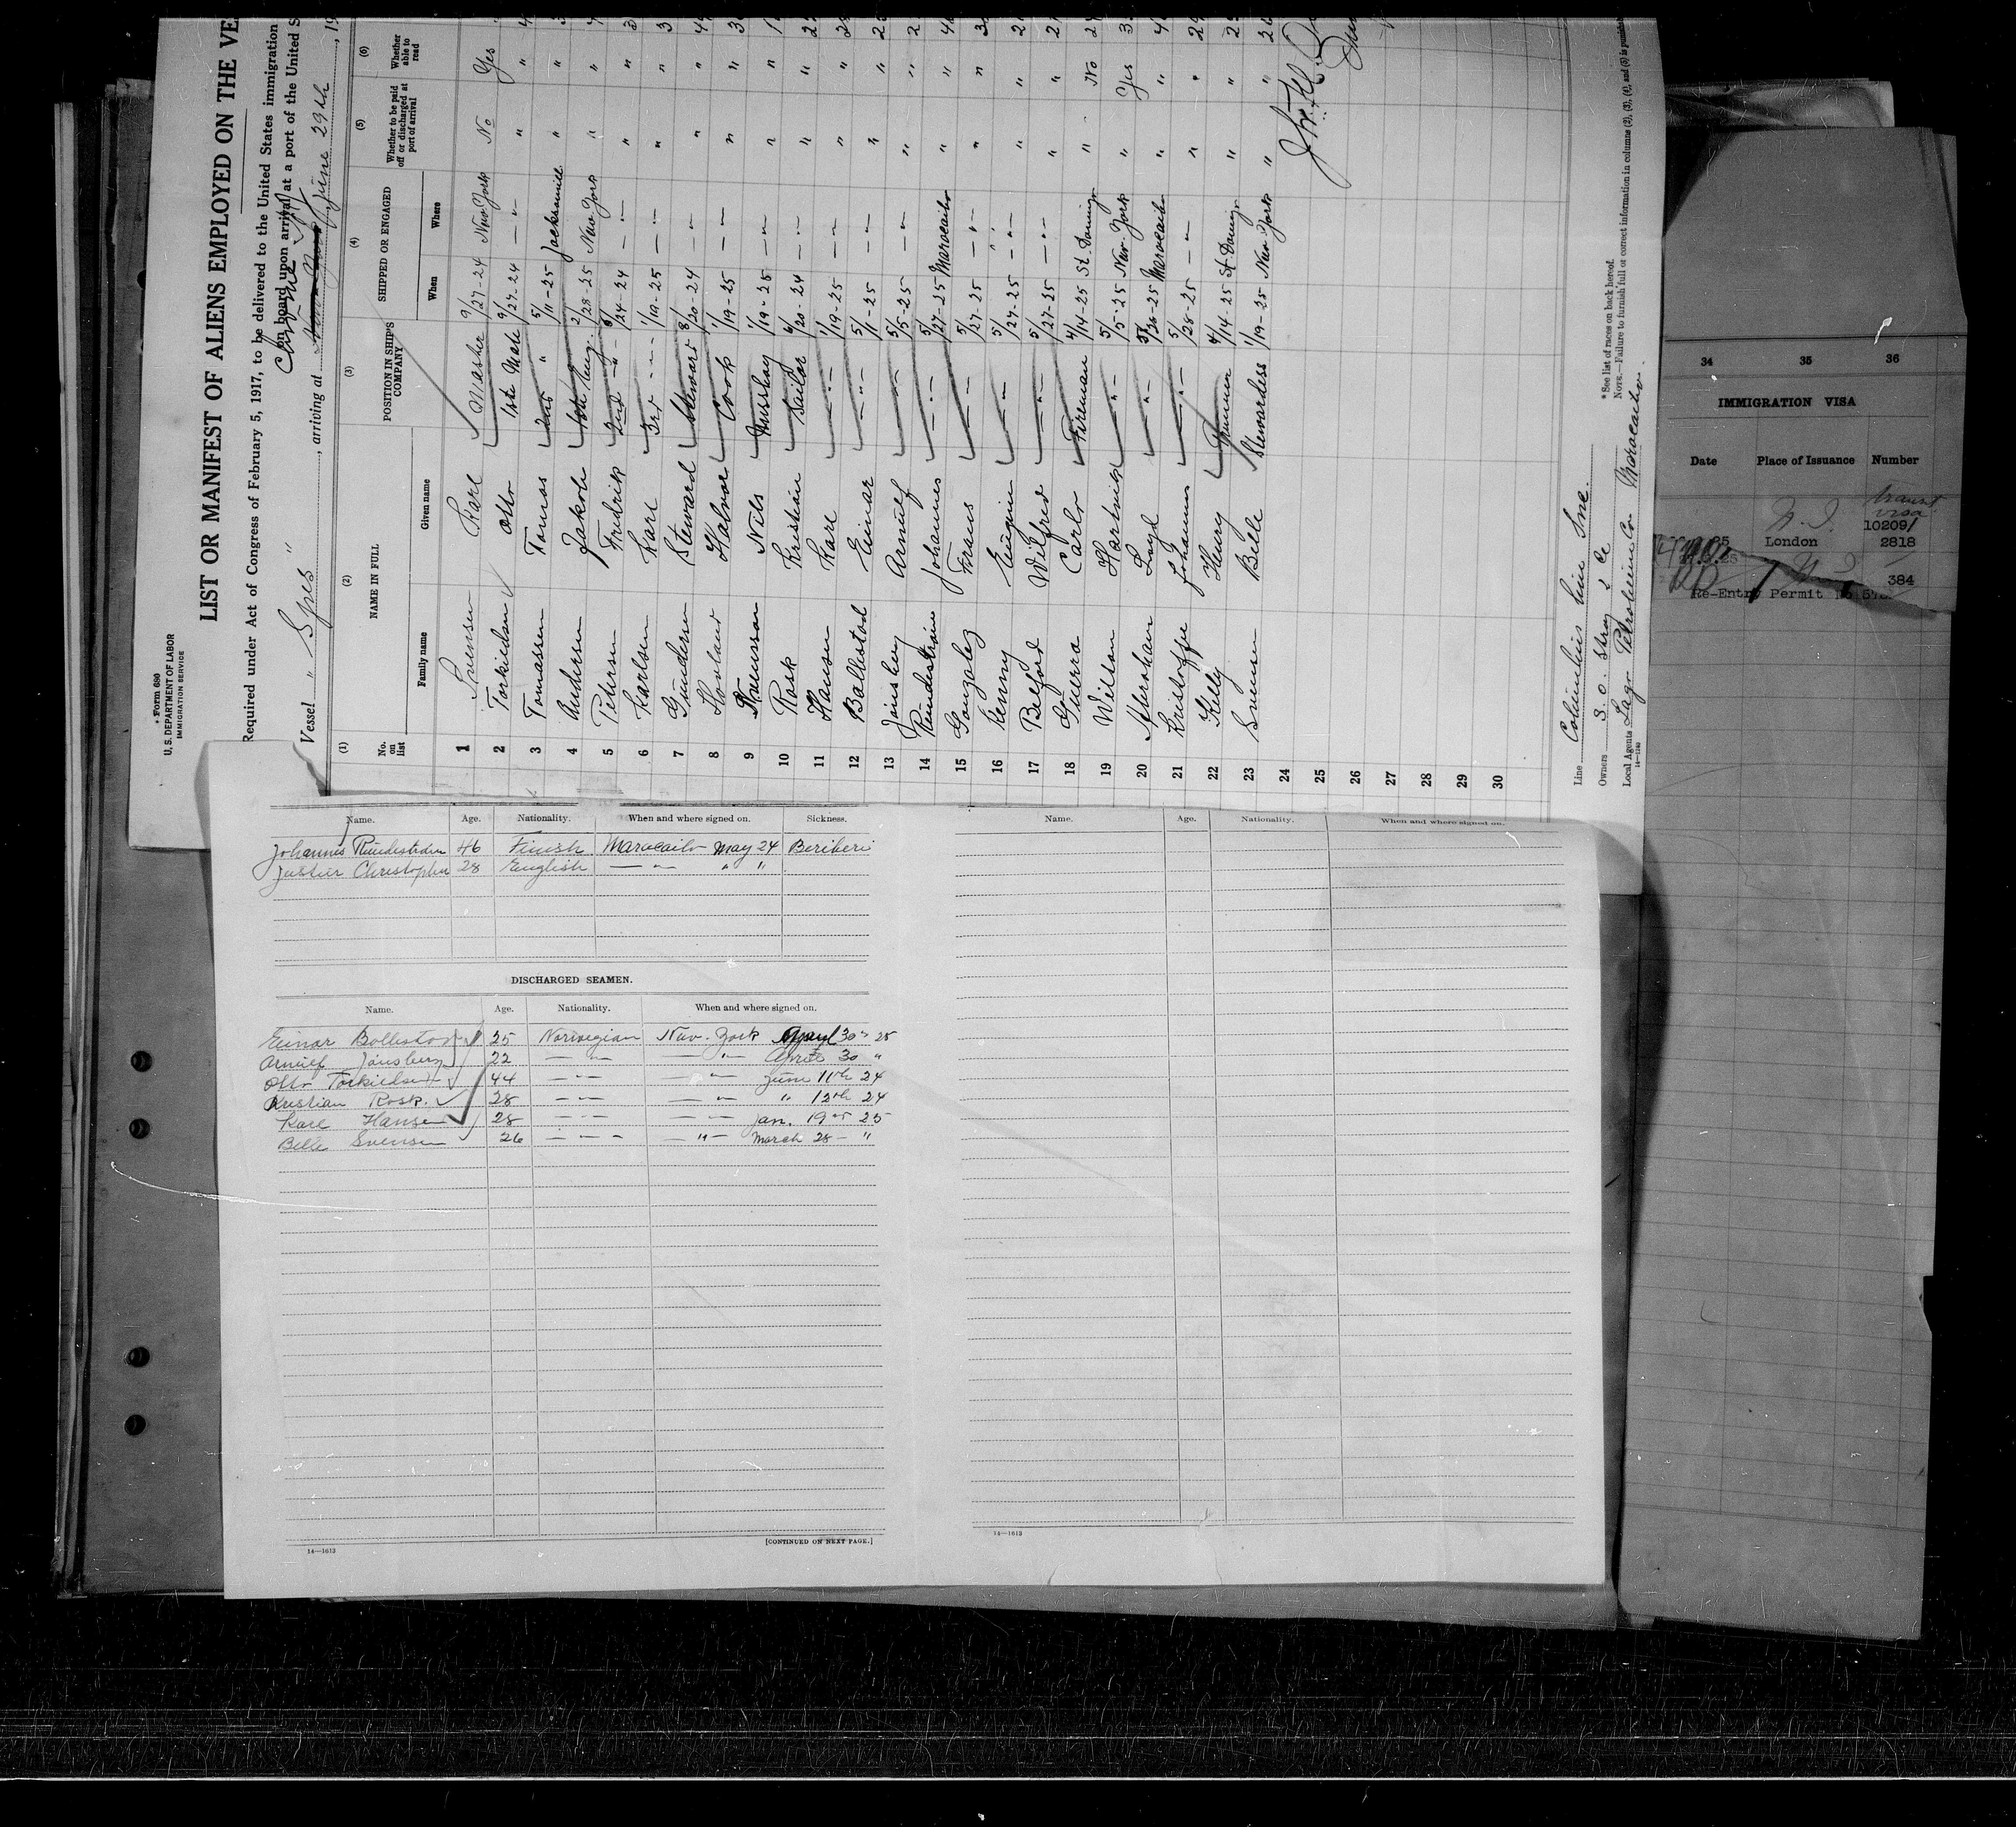 Form 680
U. S. DEPARTMENT OF LABOR
IMMIGRATION SERVICE
LIST OR MANIFEST OF ALIENS EMPLOYED ON THE VE
Required under Act of Congress of February 5, 1917, to be delivered to the United States immigration
on board upon arrival at a port of the United S
Vessel " Ypres " , arriving at June 29th , 19
(1) (2) (3) (4) (5) (6)
No. on list NAME IN FULL POSITION IN SHIP'S COMPANY SHIPPED OR ENGAGED Whether to be paid off or discharged at port of arrival Whether able to read
Family name Given name When Where
1 Svensen Karl Master 9/27-24 New York No Yes
2 Torkildsen Otto 1ste Mate 9/27-24 — " — " "
3 Tomassen Tomas 2nd " 5/11-25 Jacksonville " "
4 Andersen Jakob 1ste Eng. 2/28-25 New York " "
5 Petersen Fredrik 2nd — " — /24-24 — " — " "
6 Karlsen Karl 3rd — " — 1/19-25 — " — " "
7 Gundersen Steward Steward 8/20-24 — " — " "
8 Hovland Halvor Cook 1/19-25 — " — " "
9 Nils Messboy 1/19-25 — " — " "
10 Rosk Kristian Sailor 6/20-24 — " — " "
11 Hansen Karl — " — 1/19-25 — " — " "
12 Ballestad Einar — " — 5/1-25 — " — " "
13 Jonsberg Arnulf — " — 5/5-25 — " — " "
14 Johannes — " — 5/27-25 Maracaibo " "
15 Gonzalez Frans — " — 5/27-25 — " — " "
16 Kenny Eugin — " — 5/27-25 — " — " "
17 Belford Wilfred — " — 5/27-25 — " — " "
18 Guerra Carlo Fireman 4/14-25 St. Domingo " No
19 Wilson Hartwick — " — 5/5-25 New York " Yes
20 Abraham Loyd — " — 5/26-25 Maracaibo " "
21 Kristoffe Johannes — " — 5/28-25 — " — " "
22 Kelly Henry 4/14-25 St. Domingo " "
23 Svensen Belle Stewardess 1/19-25 New York " "
24
25
26
27
28
29
30
Line Columbus Line Inc.
Owners S. O. Stray & Co
Local Agents Lago Petroleum Co Maracaibo.
14—1240
* See list of races on back hereof.
NOTE.—Failure to furnish full or correct information in columns (2), (3), (4), and (5) is punishab
34 35 36
IMMIGRATION VISA
Date Place of Issuance Number
transit visa
N. Y. 10209/
London 2818
384
Re-Entry Permit No
Name. Age. Nationality. When and where signed on. Sickness.
Johannes 46 Finish Maracaibo May 24 Beriberi
Christopher 28 English — " — " "
DISCHARGED SEAMEN.
Name. Age. Nationality. When and where signed on.
Einar Bollestad 25 Norwegian New York April 30 25
Arnulf Jonsberg 22 — " — — " — April 30 "
Otto Torkildsen 44 — " — — " — June 11th 24
Kristian Rosk. 28 — " — — " — " 12th 24
Karl Hansen 28 — " — — " — Jan. 19 25
Belle Svensen 26 — " — — " — March 28 — "
14—1613
[CONTINUED ON NEXT PAGE.]
Name. Age. Nationality. When and where signed on.
14—1613